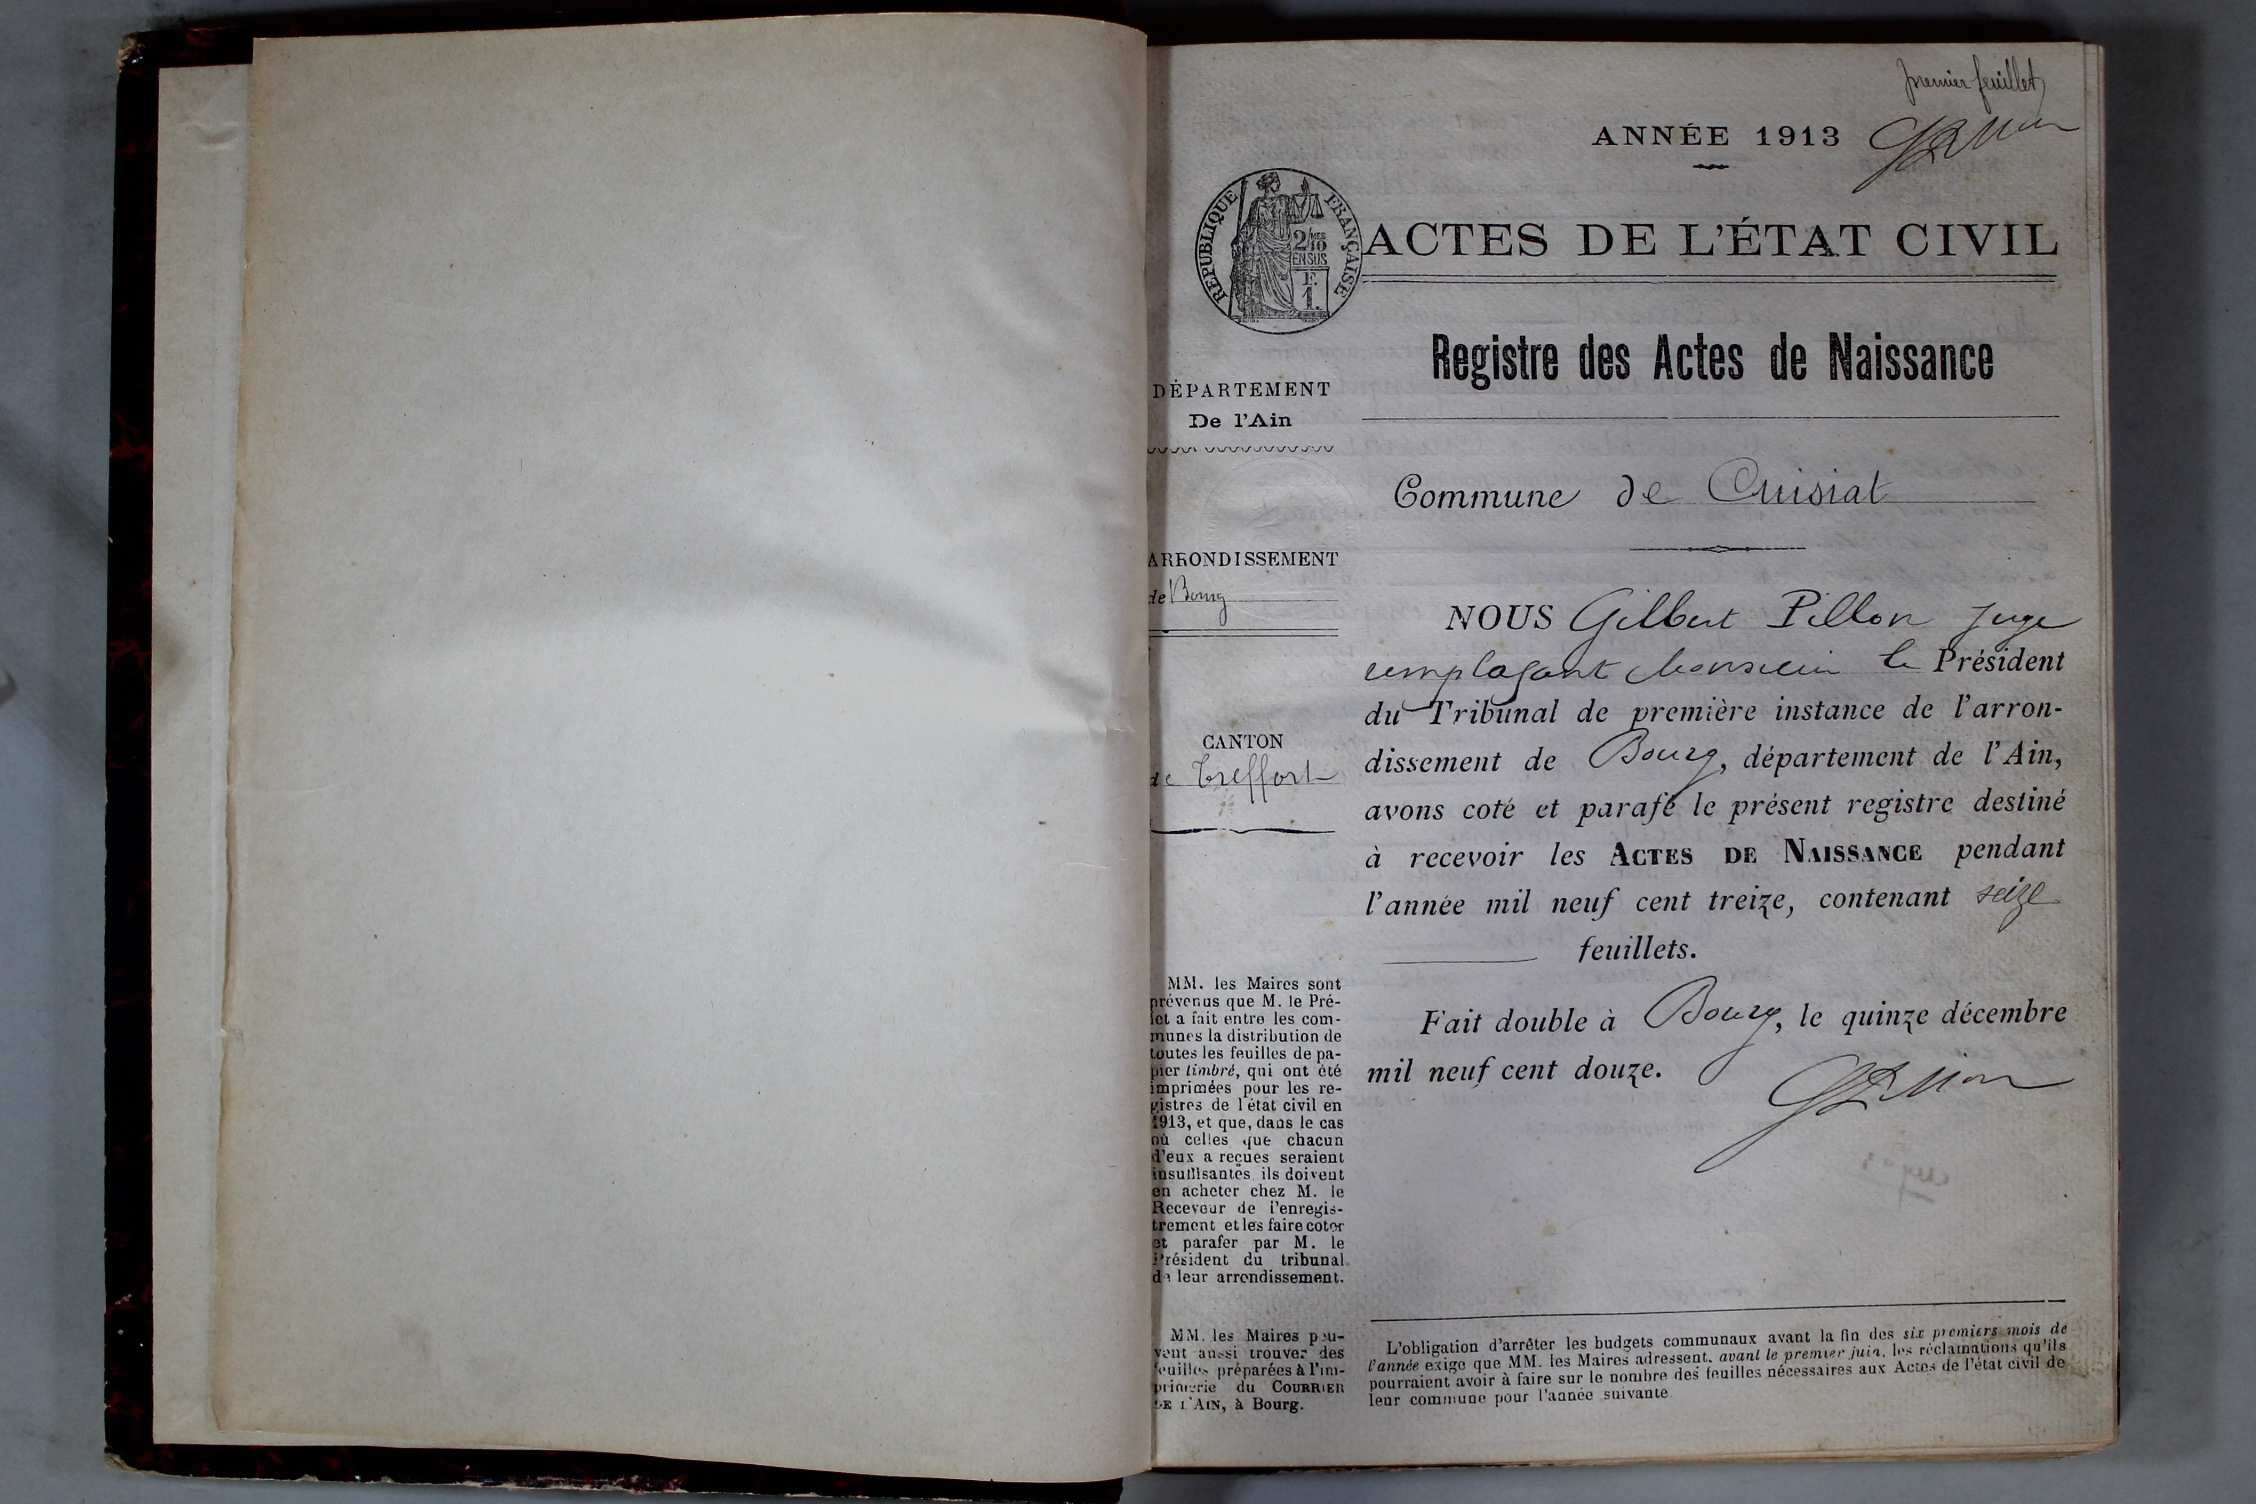 premier feuillet
ANNÉE 1913
RÉPUBLIQUE FRANÇAISE
2/10 MES
EN SUS
F.
1.
ACTES DE L'ÉTAT CIVIL
Registre des Actes de Naissance
DÉPARTEMENT
De l'Ain
Commune de Cuisiat
ARRONDISSEMENT
de Bourg
CANTON
de Treffort
NOUS Gilbert Pillon juge
remplaçant Monsieur le Président
du Tribunal de première instance de l'arron-
dissement de Bourg, département de l'Ain,
avons coté et parafé le présent registre destiné
à recevoir les ACTES DE NAISSANCE pendant
l'année mil neuf cent treize, contenant seize
feuillets.
Fait double à Bourg, le quinze décembre
mil neuf cent douze.
MM. les Maires sont
prévenus que M. le Pré-
fet a fait entre les com-
munes la distribution de
toutes les feuilles de pa-
pier timbré, qui ont été
imprimées pour les re-
gistres de l'état civil en
1913, et que, dans le cas
où celles que chacun
d'eux a reçues seraient
insuffisantes, ils doivent
en acheter chez M. le
Receveur de l'enregis-
trement et les faire coter
et parafer par M. le
Président du tribunal
de leur arrondissement.
MM. les Maires peu-
vent aussi trouver des
feuilles préparées à l'im-
primerie du COURRIER
DE L'AIN, à Bourg.
L'obligation d'arrêter les budgets communaux avant la fin des six premiers mois de
l'année exige que MM. les Maires adressent, avant le premier juin, les réclamations qu'ils
pourraient avoir à faire sur le nombre des feuilles nécessaires aux Actes de l'état civil de
leur commune pour l'année suivante.